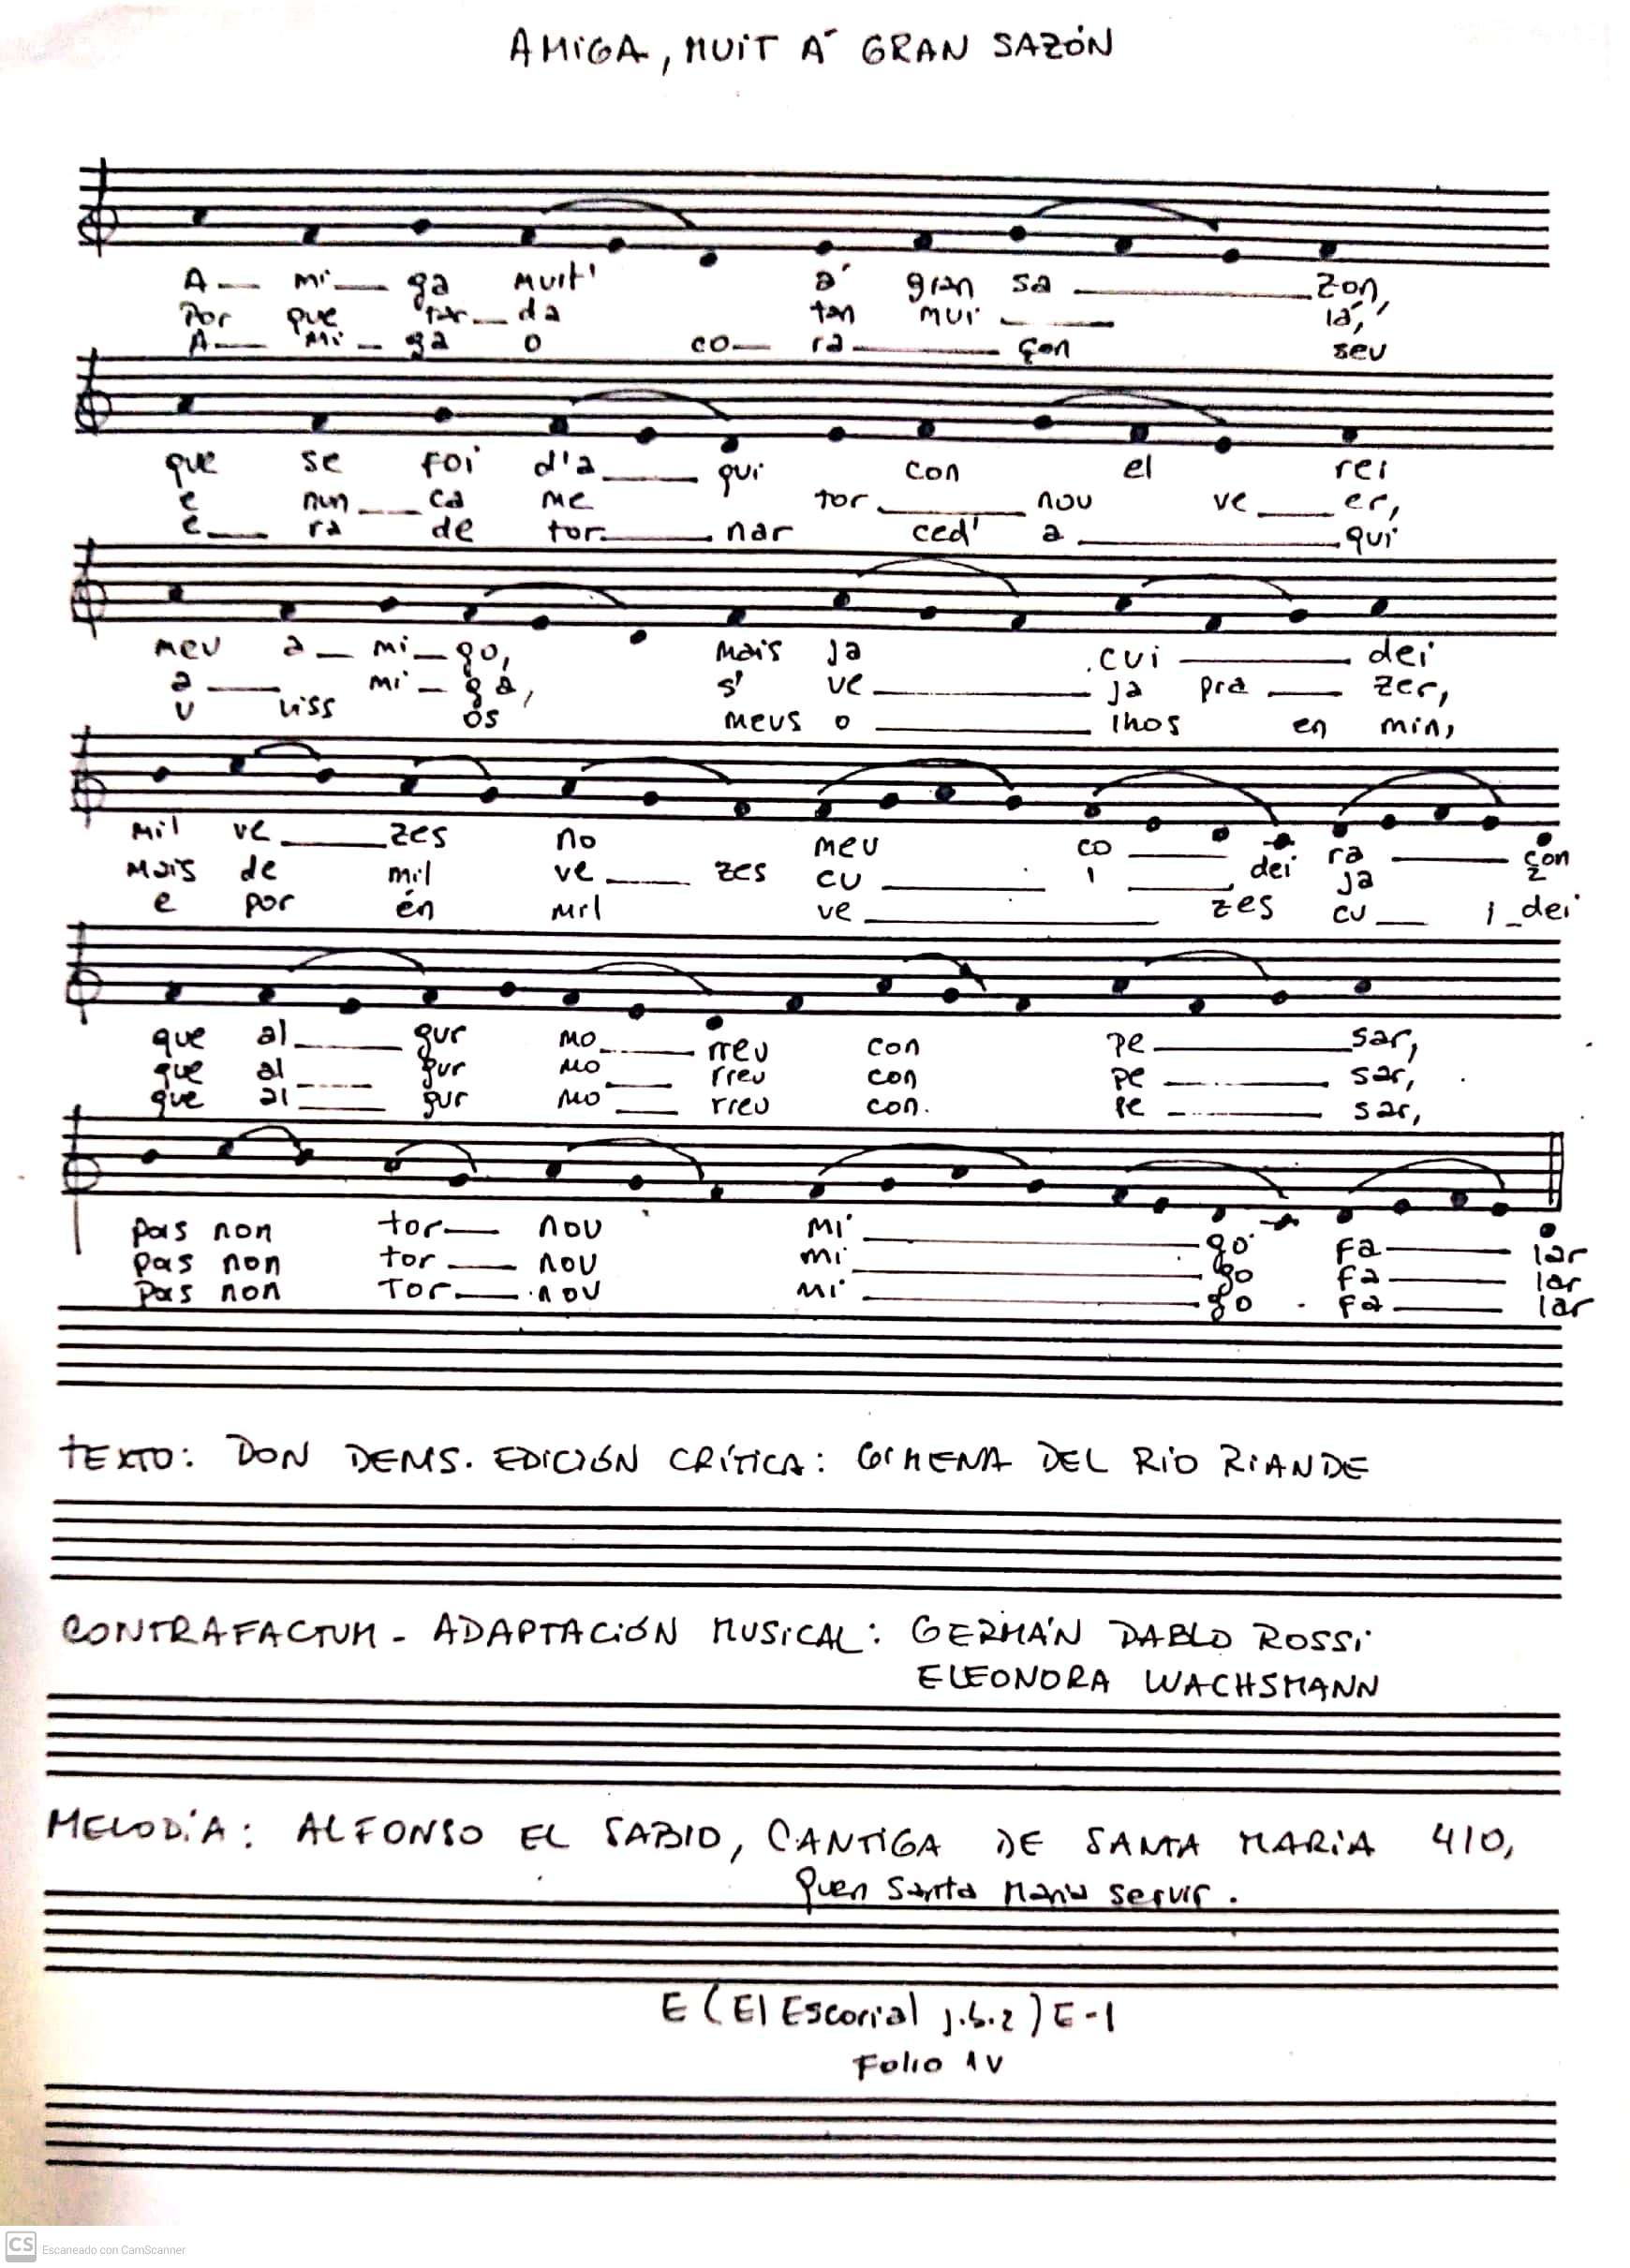 AMIGA, MUIT Á GRAN SAZÓN
A— mi— ga muit' á gran sa ——— zon,
Por que tar—da tan mui —— lá,
A— mi—ga o co— ra——— çon seu
que se foi d'a—— qui con el rei
e nun—ca me tor——— nou ve—er,
e— ra de tor——. nar ced' a ———.qui
meu a— mi—go, mais ja .cui ——— dei
a —— mi—ga, s' ve———— ja pra —— zer,
u viss os meus o ———— lhos en min,
mil ve——zes no meu co —— ra ——— çon
mais de mil ve—— zes cu ——— i ——— dei ja
e por én mil ve———— zes cu— i_dei
que al—— gur mo—— rreu con pe ——— sar,
que al —— gur mo —— rreu con pe ——— sar,
que al —— gur mo —— rreu con. pe ——— sar,
pois non tor— nou mi ———— go fa—— lar
pois non tor — nou mi ———— go fa—— lar
pois non tor—.nou mi ———— go . fa—— lar
TEXTO: DON DENIS. EDICIÓN CRÍTICA: GIMENA DEL RIO RIANDE
CONTRAFACTUM - ADAPTACIÓN MUSICAL: GERMÁN PABLO ROSSI
ELEONORA WACHSMANN
MELODÍA: ALFONSO EL SABIO, CANTIGA DE SANTA MARIA 410,
Quen Santa Maria servir.
E (El Escorial j.b.2) E-1
Folio 1v
CS Escaneado con CamScanner